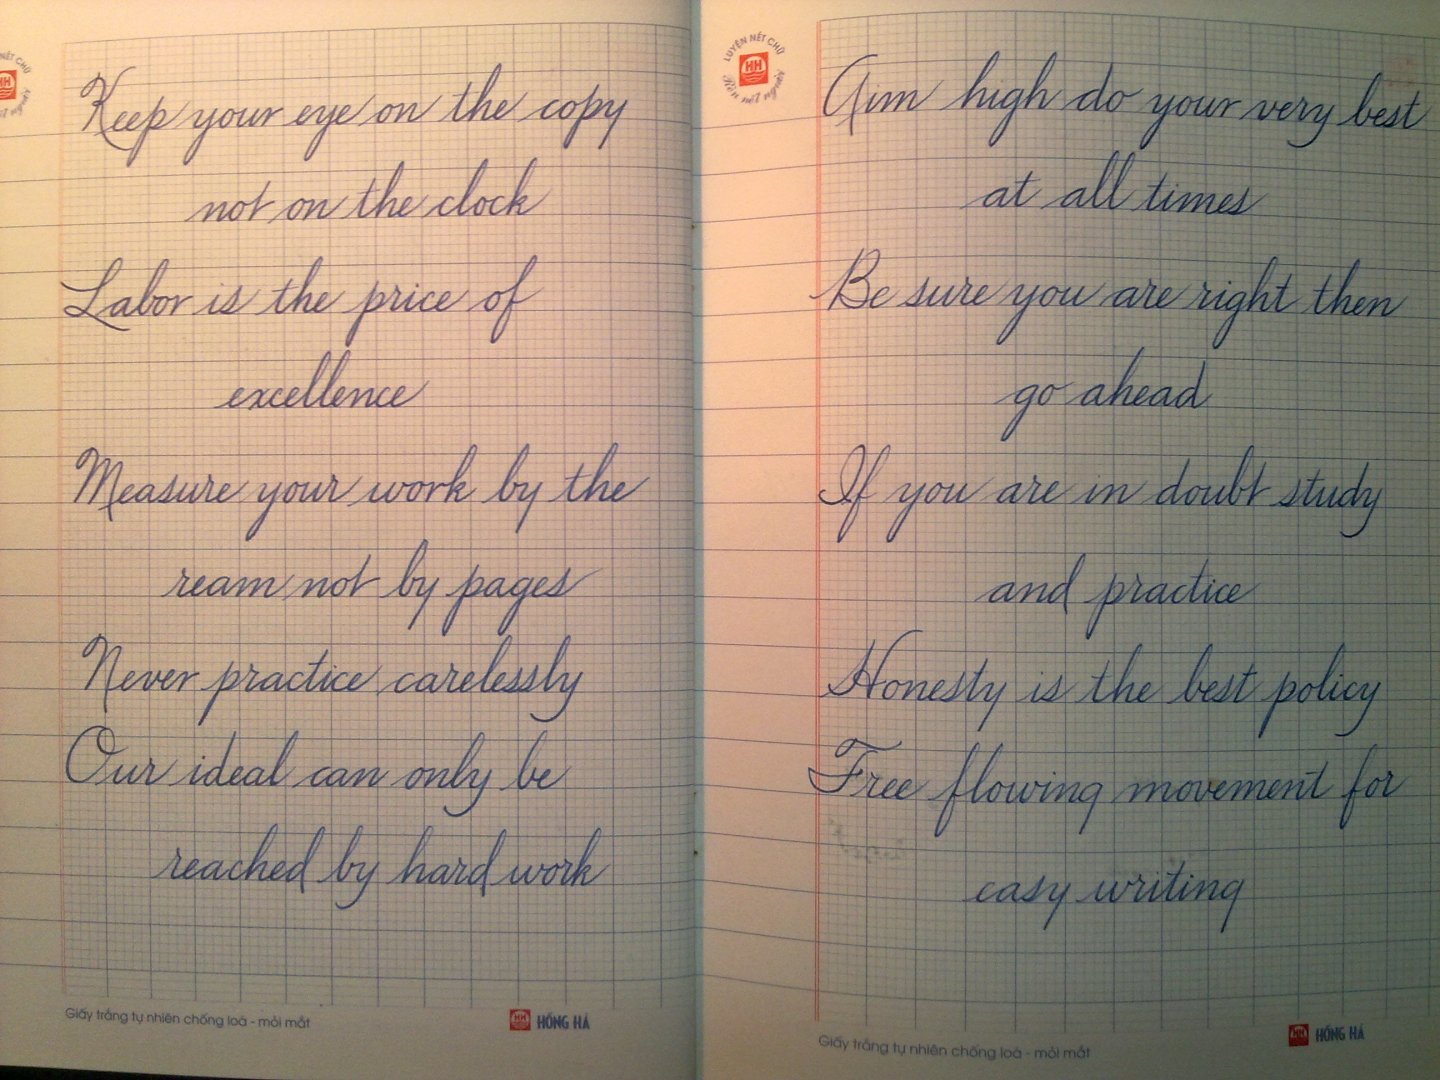 Keep your eye on the copy
not on the clock
Labor is the price of
excellence
Measure your work by the
ream not by pages
Never practice carelessly
Our ideal can only be
reached by hard work
Giấy trắng tự nhiên chống loá - mỏi mắt
HH HỒNG HÀ
LUYỆN NÉT CHỮ
HH
Rèn nết người
Aim high do your very best
at all times
Be sure you are right then
go ahead
If you are in doubt study
and practice
Honesty is the best policy
Free flowing movement for
easy writing
Giấy trắng tự nhiên chống loá - mỏi mắt
HH HỒNG HÀ